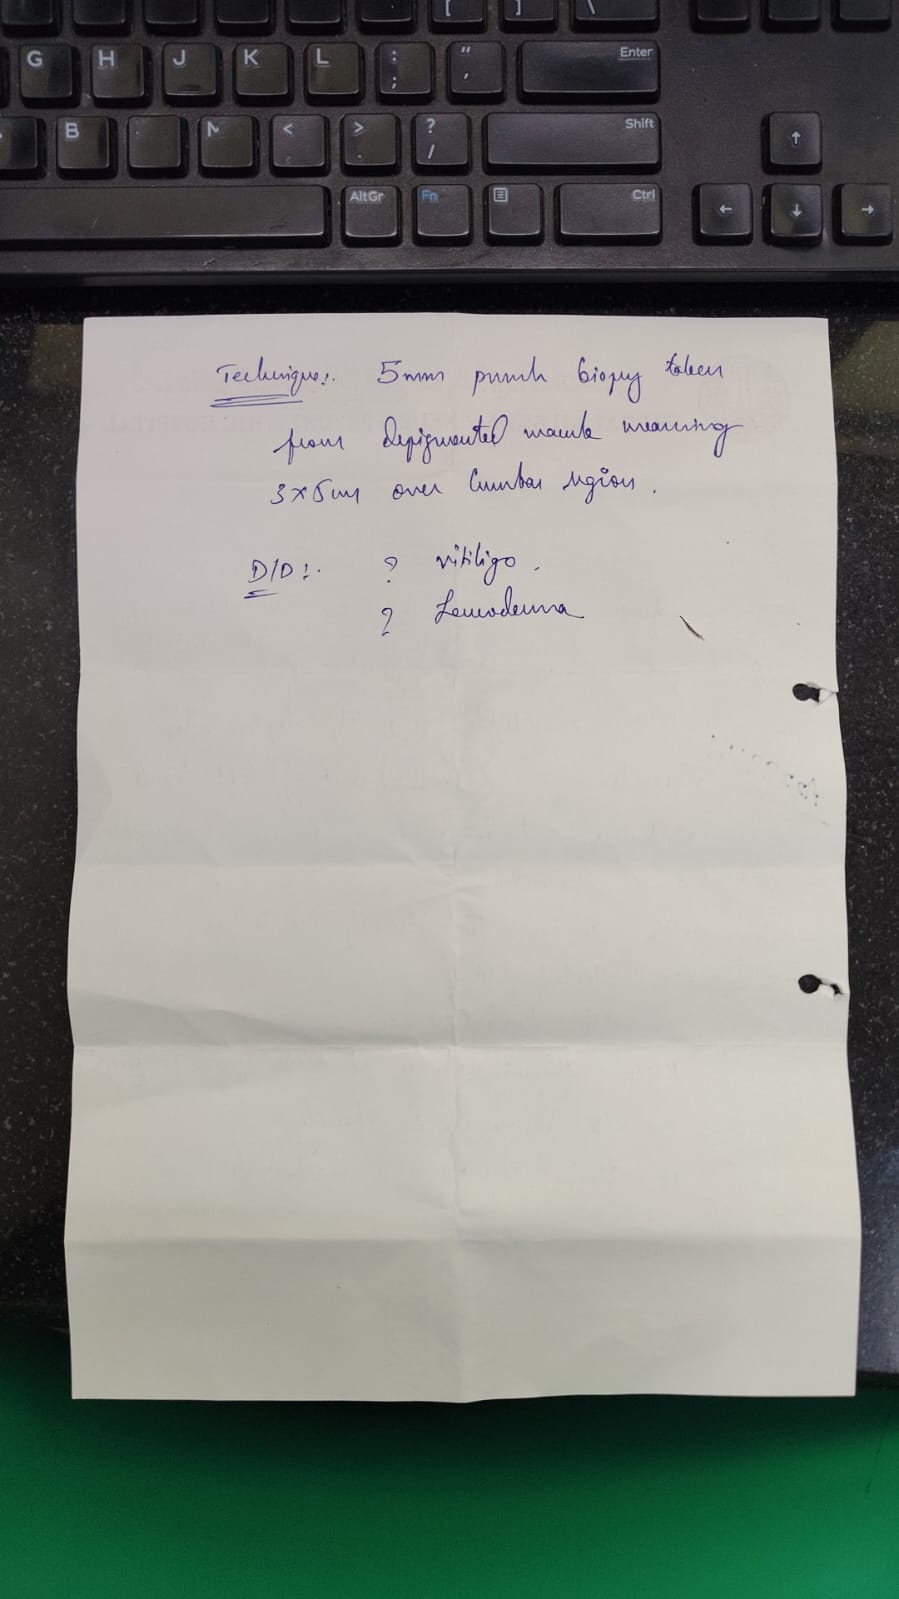 [ ] \
G H J K L : ; " ' Enter
B M < > . ? / Shift ↑
AltGr Fn Ctrl ← ↓ →
Technique:. 5mm punch biopsy taken
from depigmented macule measuring
3x5cm over lumbar region.
D/D:. ? vitiligo.
? Leucoderma